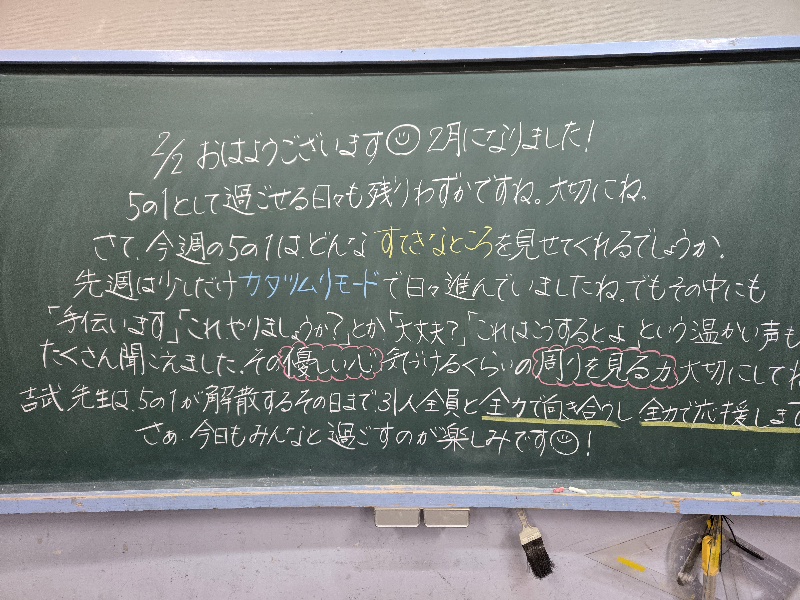 2/2 おはようございます☺ 2月になりました!
5の1として過ごせる日々も残りわずかですね。大切にね。
さて、今週の5の1は、どんなすてきなところを見せてくれるでしょうか。
先週は少しだけカタツムリモードで日々進んでいましたね。でもその中にも
「手伝います」「これ、やりましょうか?」とか「大丈夫?」「これはこうするとよ」という温かい声も
たくさん聞こえました。その優しい心 気づけるくらいの周りを見る力 大切にしてね
吉武先生は、5の1が解散するその日まで、31人全員と全力で向き合うし全力で応援します
さぁ、今日もみんなと過ごすのが楽しみです☺!